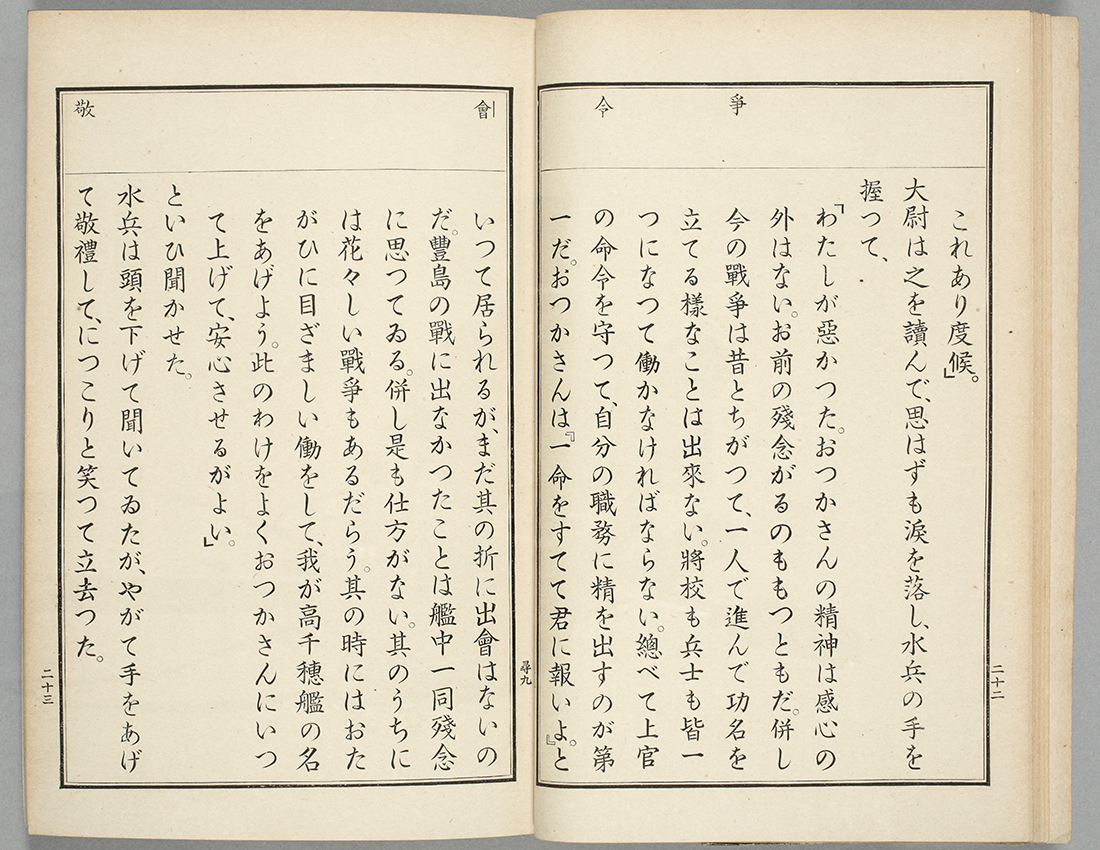 爭
令
これあり度候。」
大尉は之を讀んで、思はずも淚を落し、水兵の手を
握つて、
「わたしが惡かつた。おつかさんの精神は感心の
外はない。お前の殘念がるのももつともだ。併し
今の戰爭は昔とちがつて、一人で進んで功名を
立てる樣なことは出來ない。將校も兵士も皆一
つになつて働かなければならない。總べて上官
の命令を守つて、自分の職務に精を出すのが第
一だ。おつかさんは、『一命をすてて君に報いよ。』と
二十二
尋九
會
敬
いつて居られるが、まだ其の折に出會はないの
だ。豐島の戰に出なかつたことは艦中一同殘念
に思つてゐる。併し是も仕方がない。其のうちに
は花々しい戰爭もあるだらう。其の時にはおた
がひに目ざましい働をして、我が高千穗艦の名
をあげよう。此のわけをよくおつかさんにいつ
て上げて、安心させるがよい。」
といひ聞かせた。
水兵は頭を下げて聞いてゐたが、やがて手をあげ
て敬禮して、につこりと笑つて立去つた。
二十三